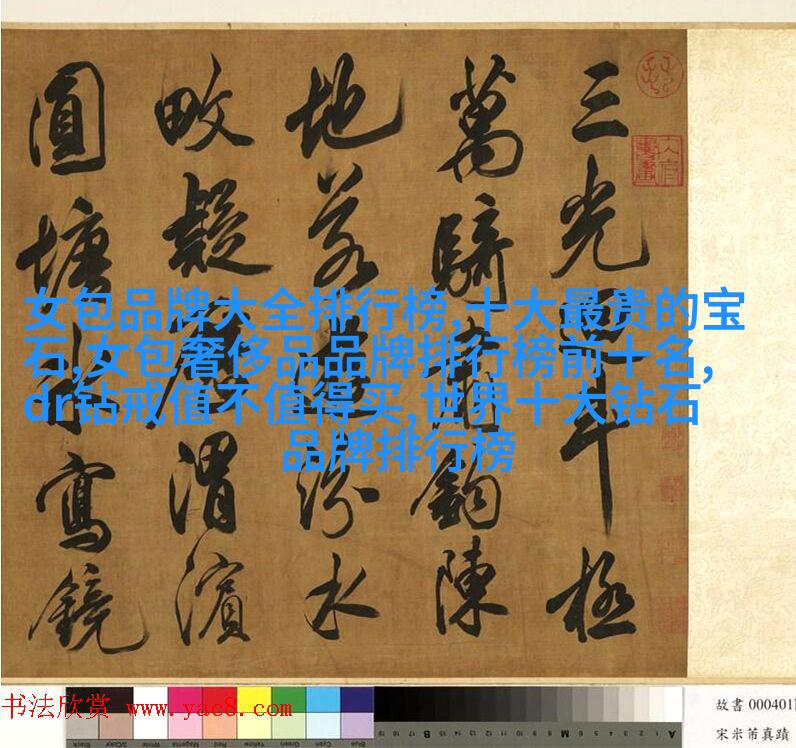 三光斗極
萬騎鉤陳
地若汾水
畋疑渭濱
圓塘寫鏡
女包品牌大全排行榜,十大最贵的宝
石,女包奢侈品品牌排行榜前十名,
dr钻戒值不值得买,世界十大钻石
品牌排行榜
书法欣赏 www.yac8.com
故書 000401
宋米芾真蹟